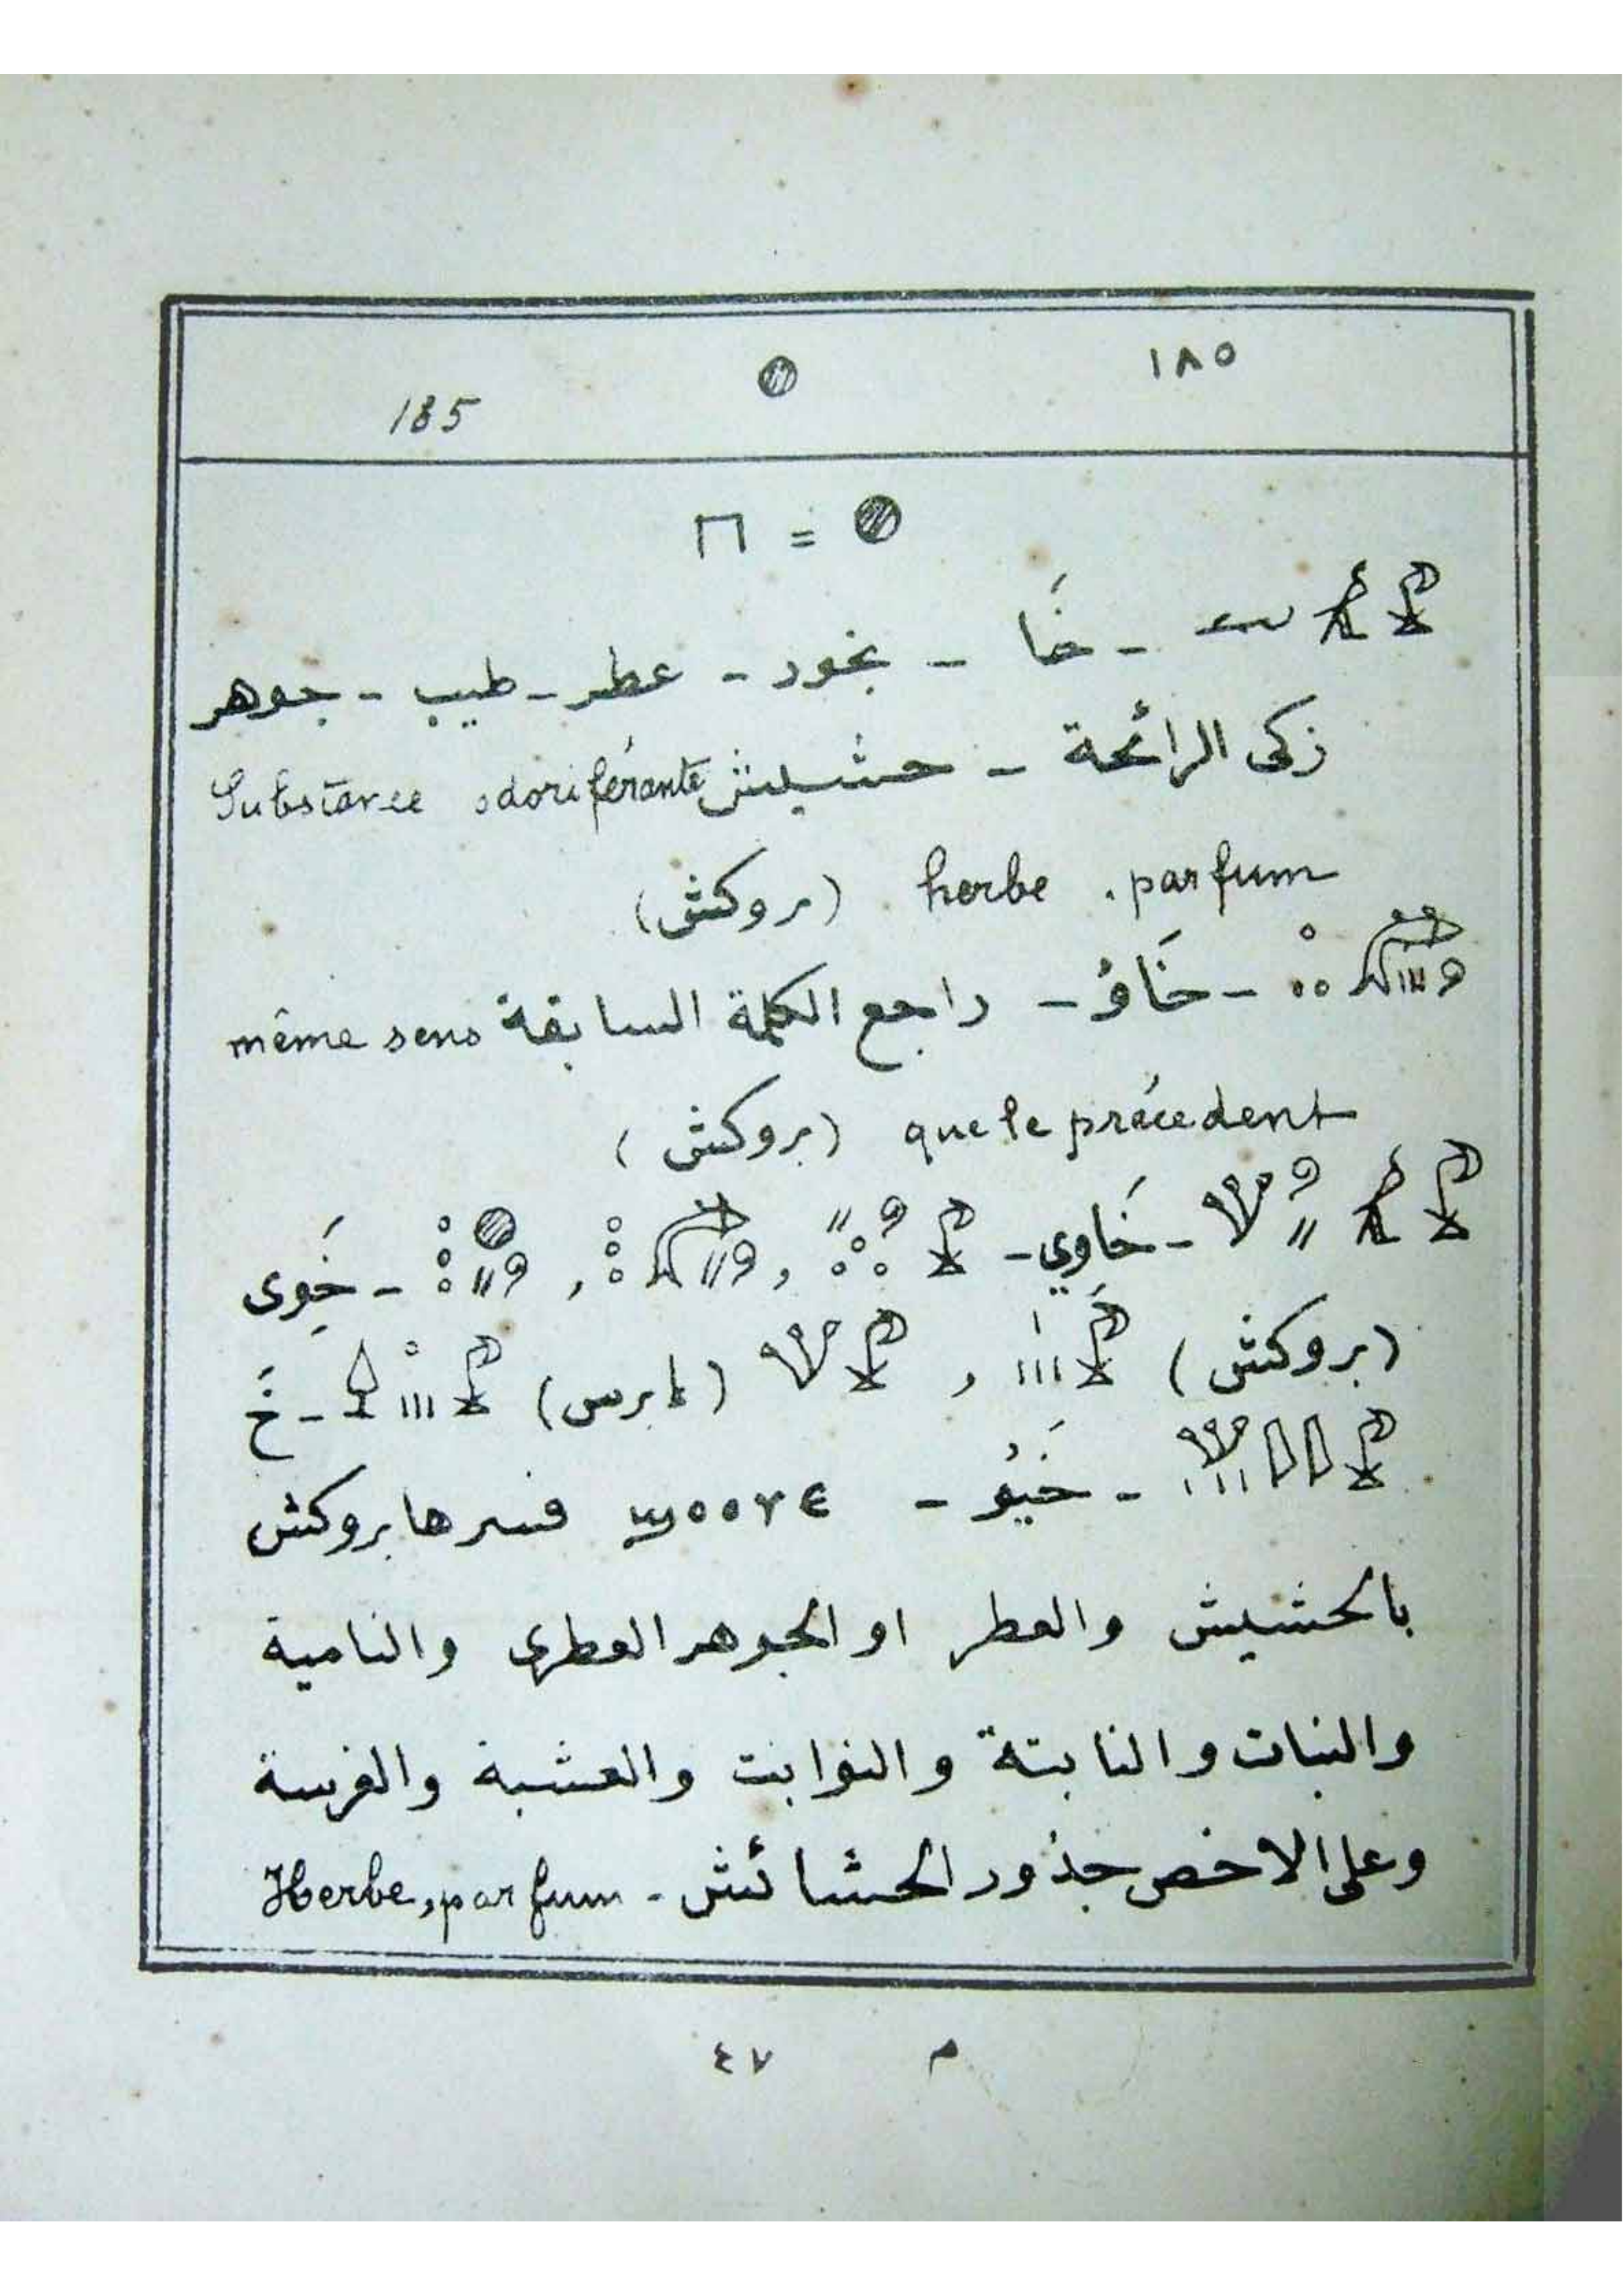 ١٨٥
185
=
خَا - بخور - عطر - طيب - جوهر
زكى الرائحة - حشيش Substance odoriférante
herbe . parfum (بروكش)
خَاوُ - راجع الكلمة السابقة même sens
que le précédent (بروكش)
خَاوي - , , - خَوِى
(بروكش) , (ابرس) - خَ
خَيُو - فسرها بروكش
بالحشيش والعطر او الجوهر العطرى والنامية
والنبات والنابتة والنوابت والعشبة والغرسة
وعلى الاخص جذور الحشائش - Herbe, parfum
م ٤٧